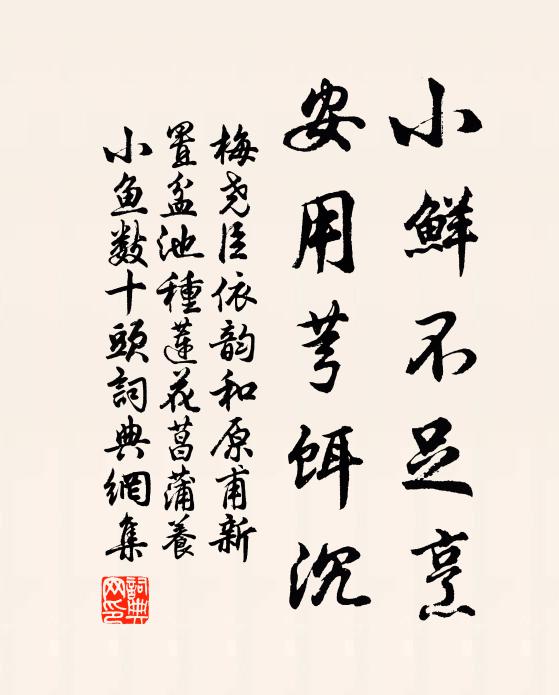 小鮮不足烹
安用芎餌沉
梅尧臣依韵和原甫新
置盆池種蓮花菖蒲養
小鱼数十頭詞典網集
詞典
网印